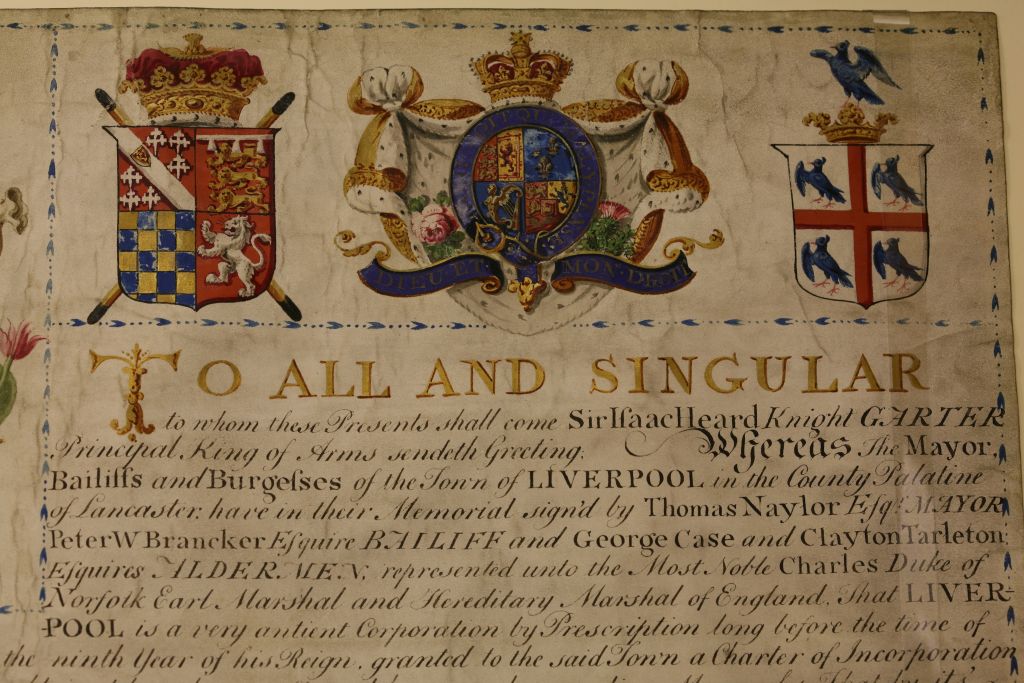 DIEU·ET· MON·DROIT
TO ALL AND SINGULAR
to whom these Presents shall come Sir Isaac Heard Knight GARTER
Principal King of Arms sendeth Greeting; Whereas The Mayor,
Bailiffs and Burgesses of the Town of LIVERPOOL in the County Palatine
of Lancaster, have in their Memorial sign'd by Thomas Naylor Esqr. MAYOR
Peter W Brancker Esquire BAILIFF and George Case and Clayton Tarleton;
Esquires ALDERMEN, represented unto the Most Noble Charles Duke of
Norfolk Earl Marshal and Hereditary Marshal of England, That LIVER-
POOL is a very antient Corporation by Prescription long before the time of
the ninth Year of his Reign, granted to the said Town a Charter of Incorporation